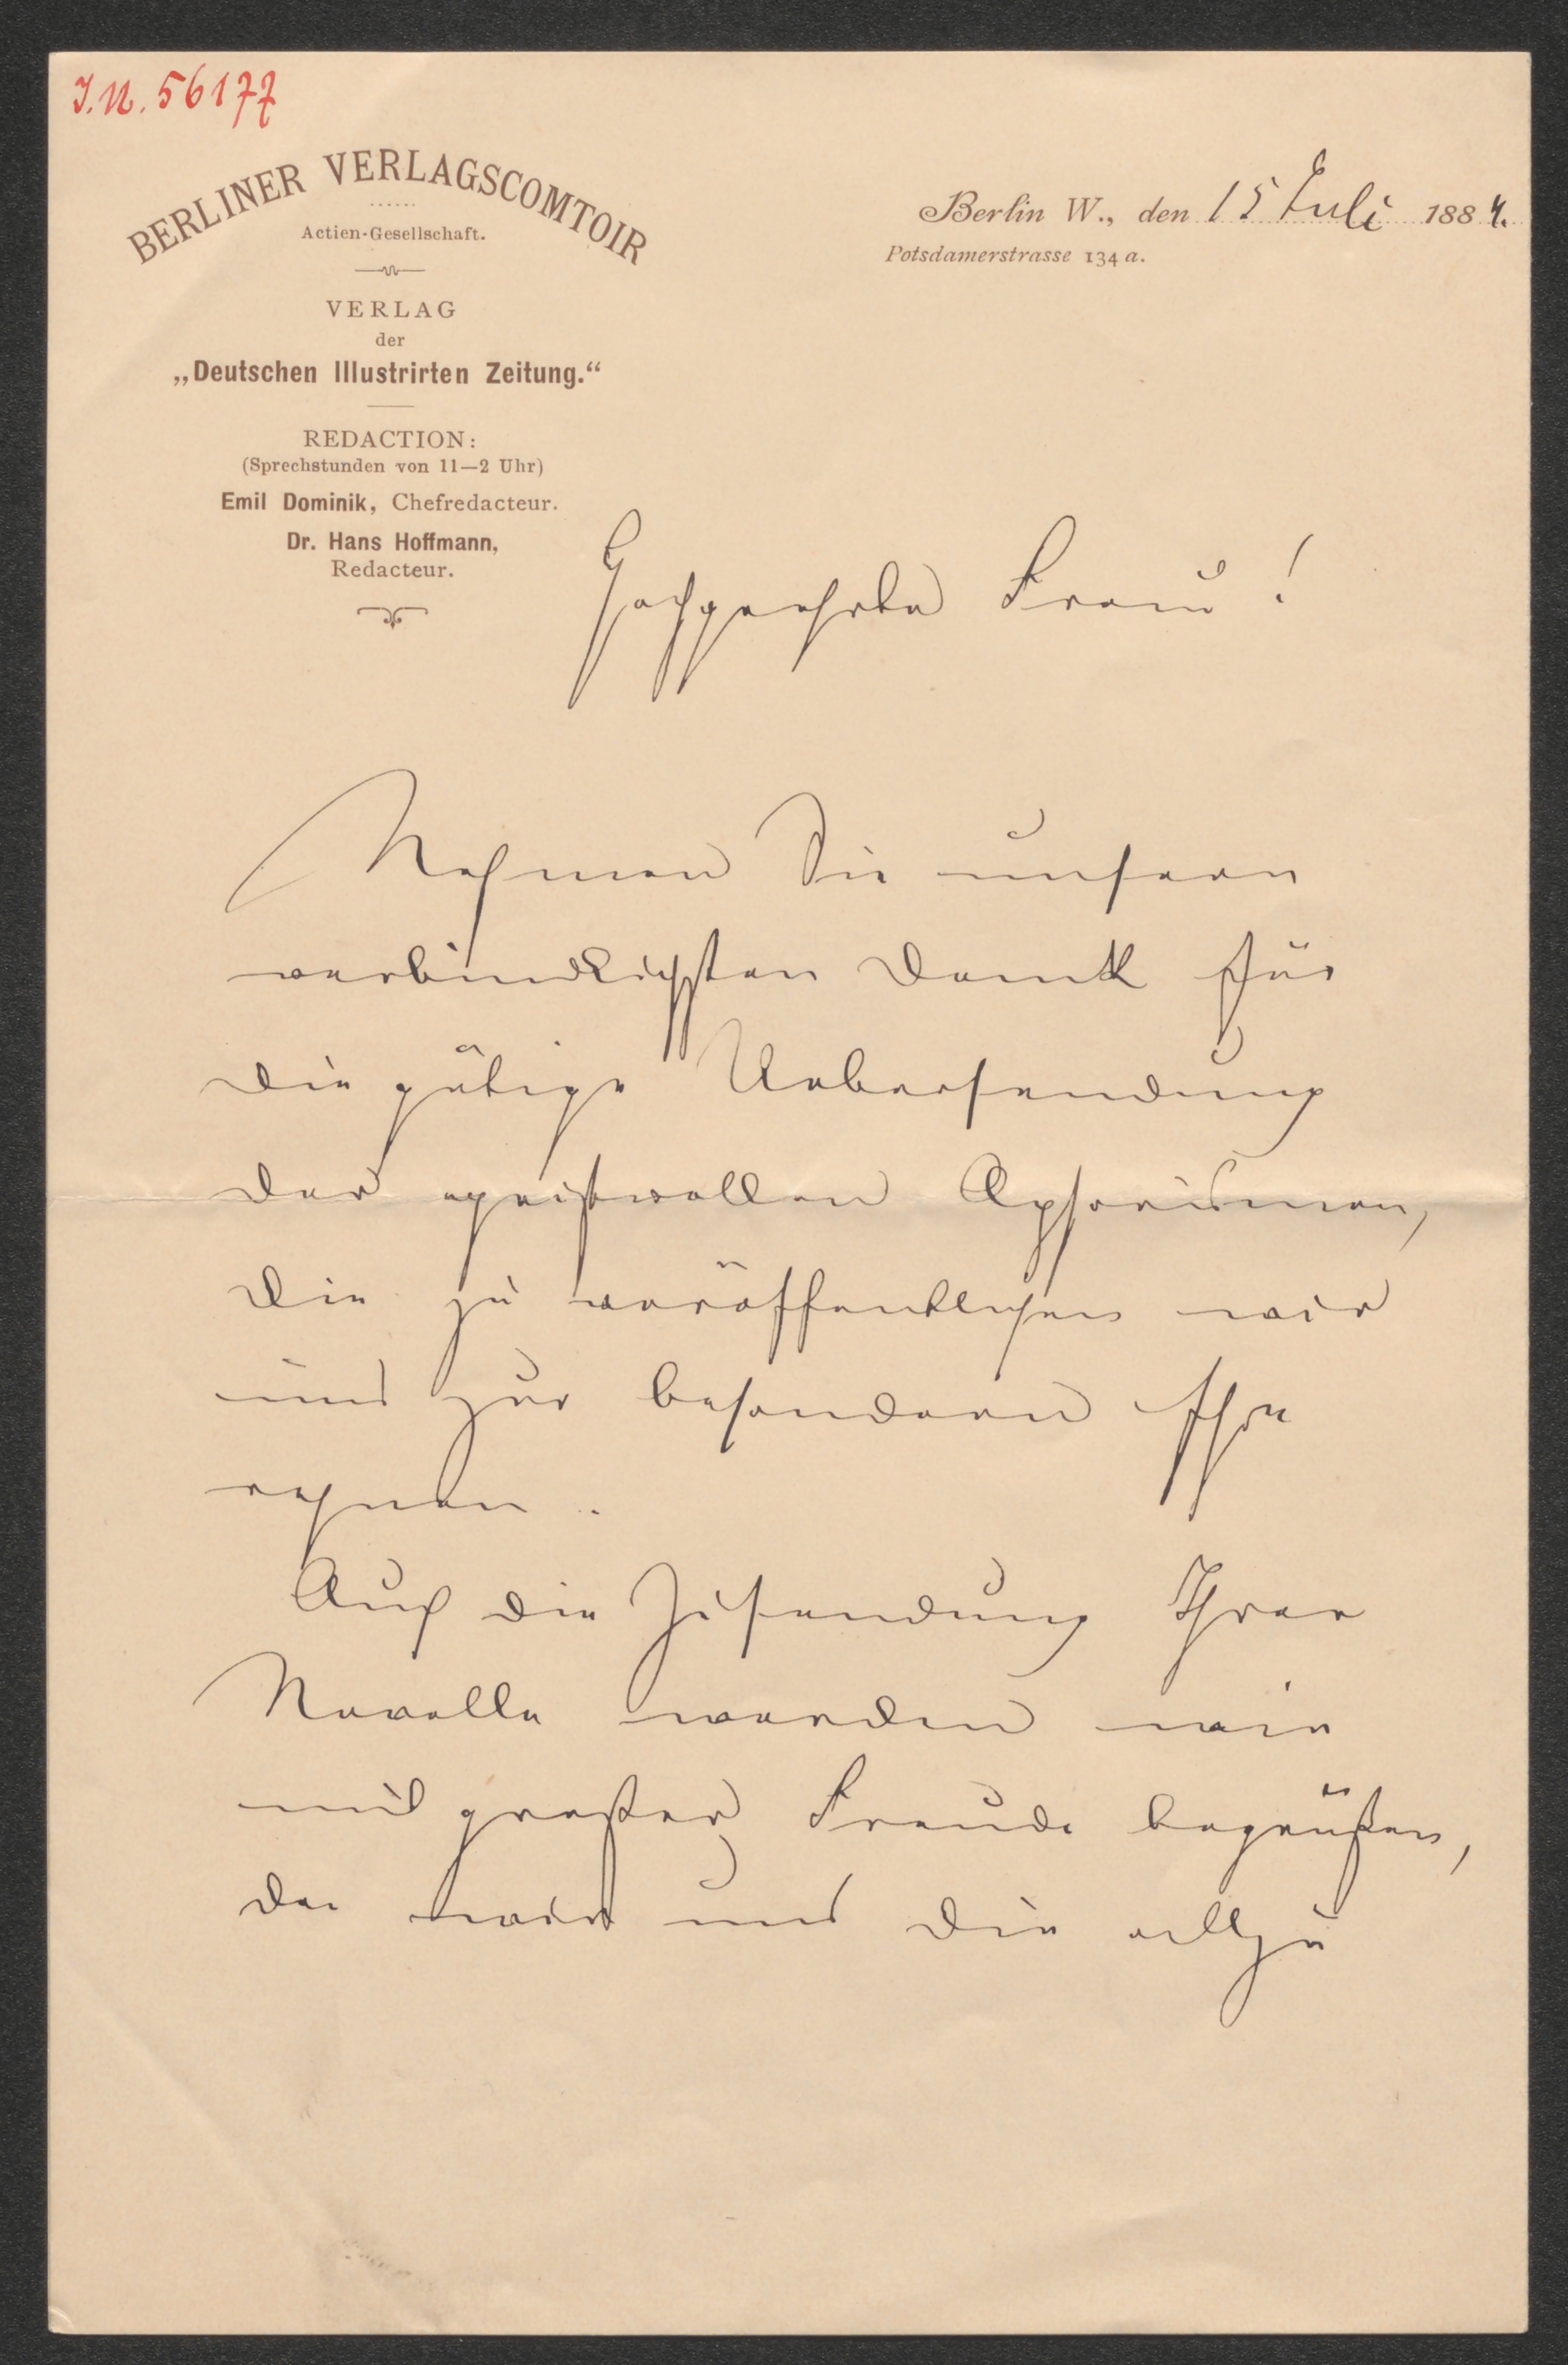 I.N. 56177
BERLINER VERLAGSCOMTOIR
Actien-Gesellschaft.
VERLAG
der
„Deutschen Illustrirten Zeitung.“
REDACTION:
(Sprechstunden von 11—2 Uhr)
Emil Dominik, Chefredacteur.
Dr. Hans Hoffmann,
Redacteur.
Berlin W., den 15 Juli 1884.
Potsdamerstrasse 134 a.
Hochgeehrte Frau!
Nehmen Sie unsern
verbindlichsten Dank für
die gütige Uebersendung
der geistvollen Aphorismen,
die zu veröffentlichen wir
uns zur besondern Ehre
rechnen.
Auch die Zusendung Ihrer
Novelle werden wir
mit großer Freude begrüßen,
da wir uns die allzu